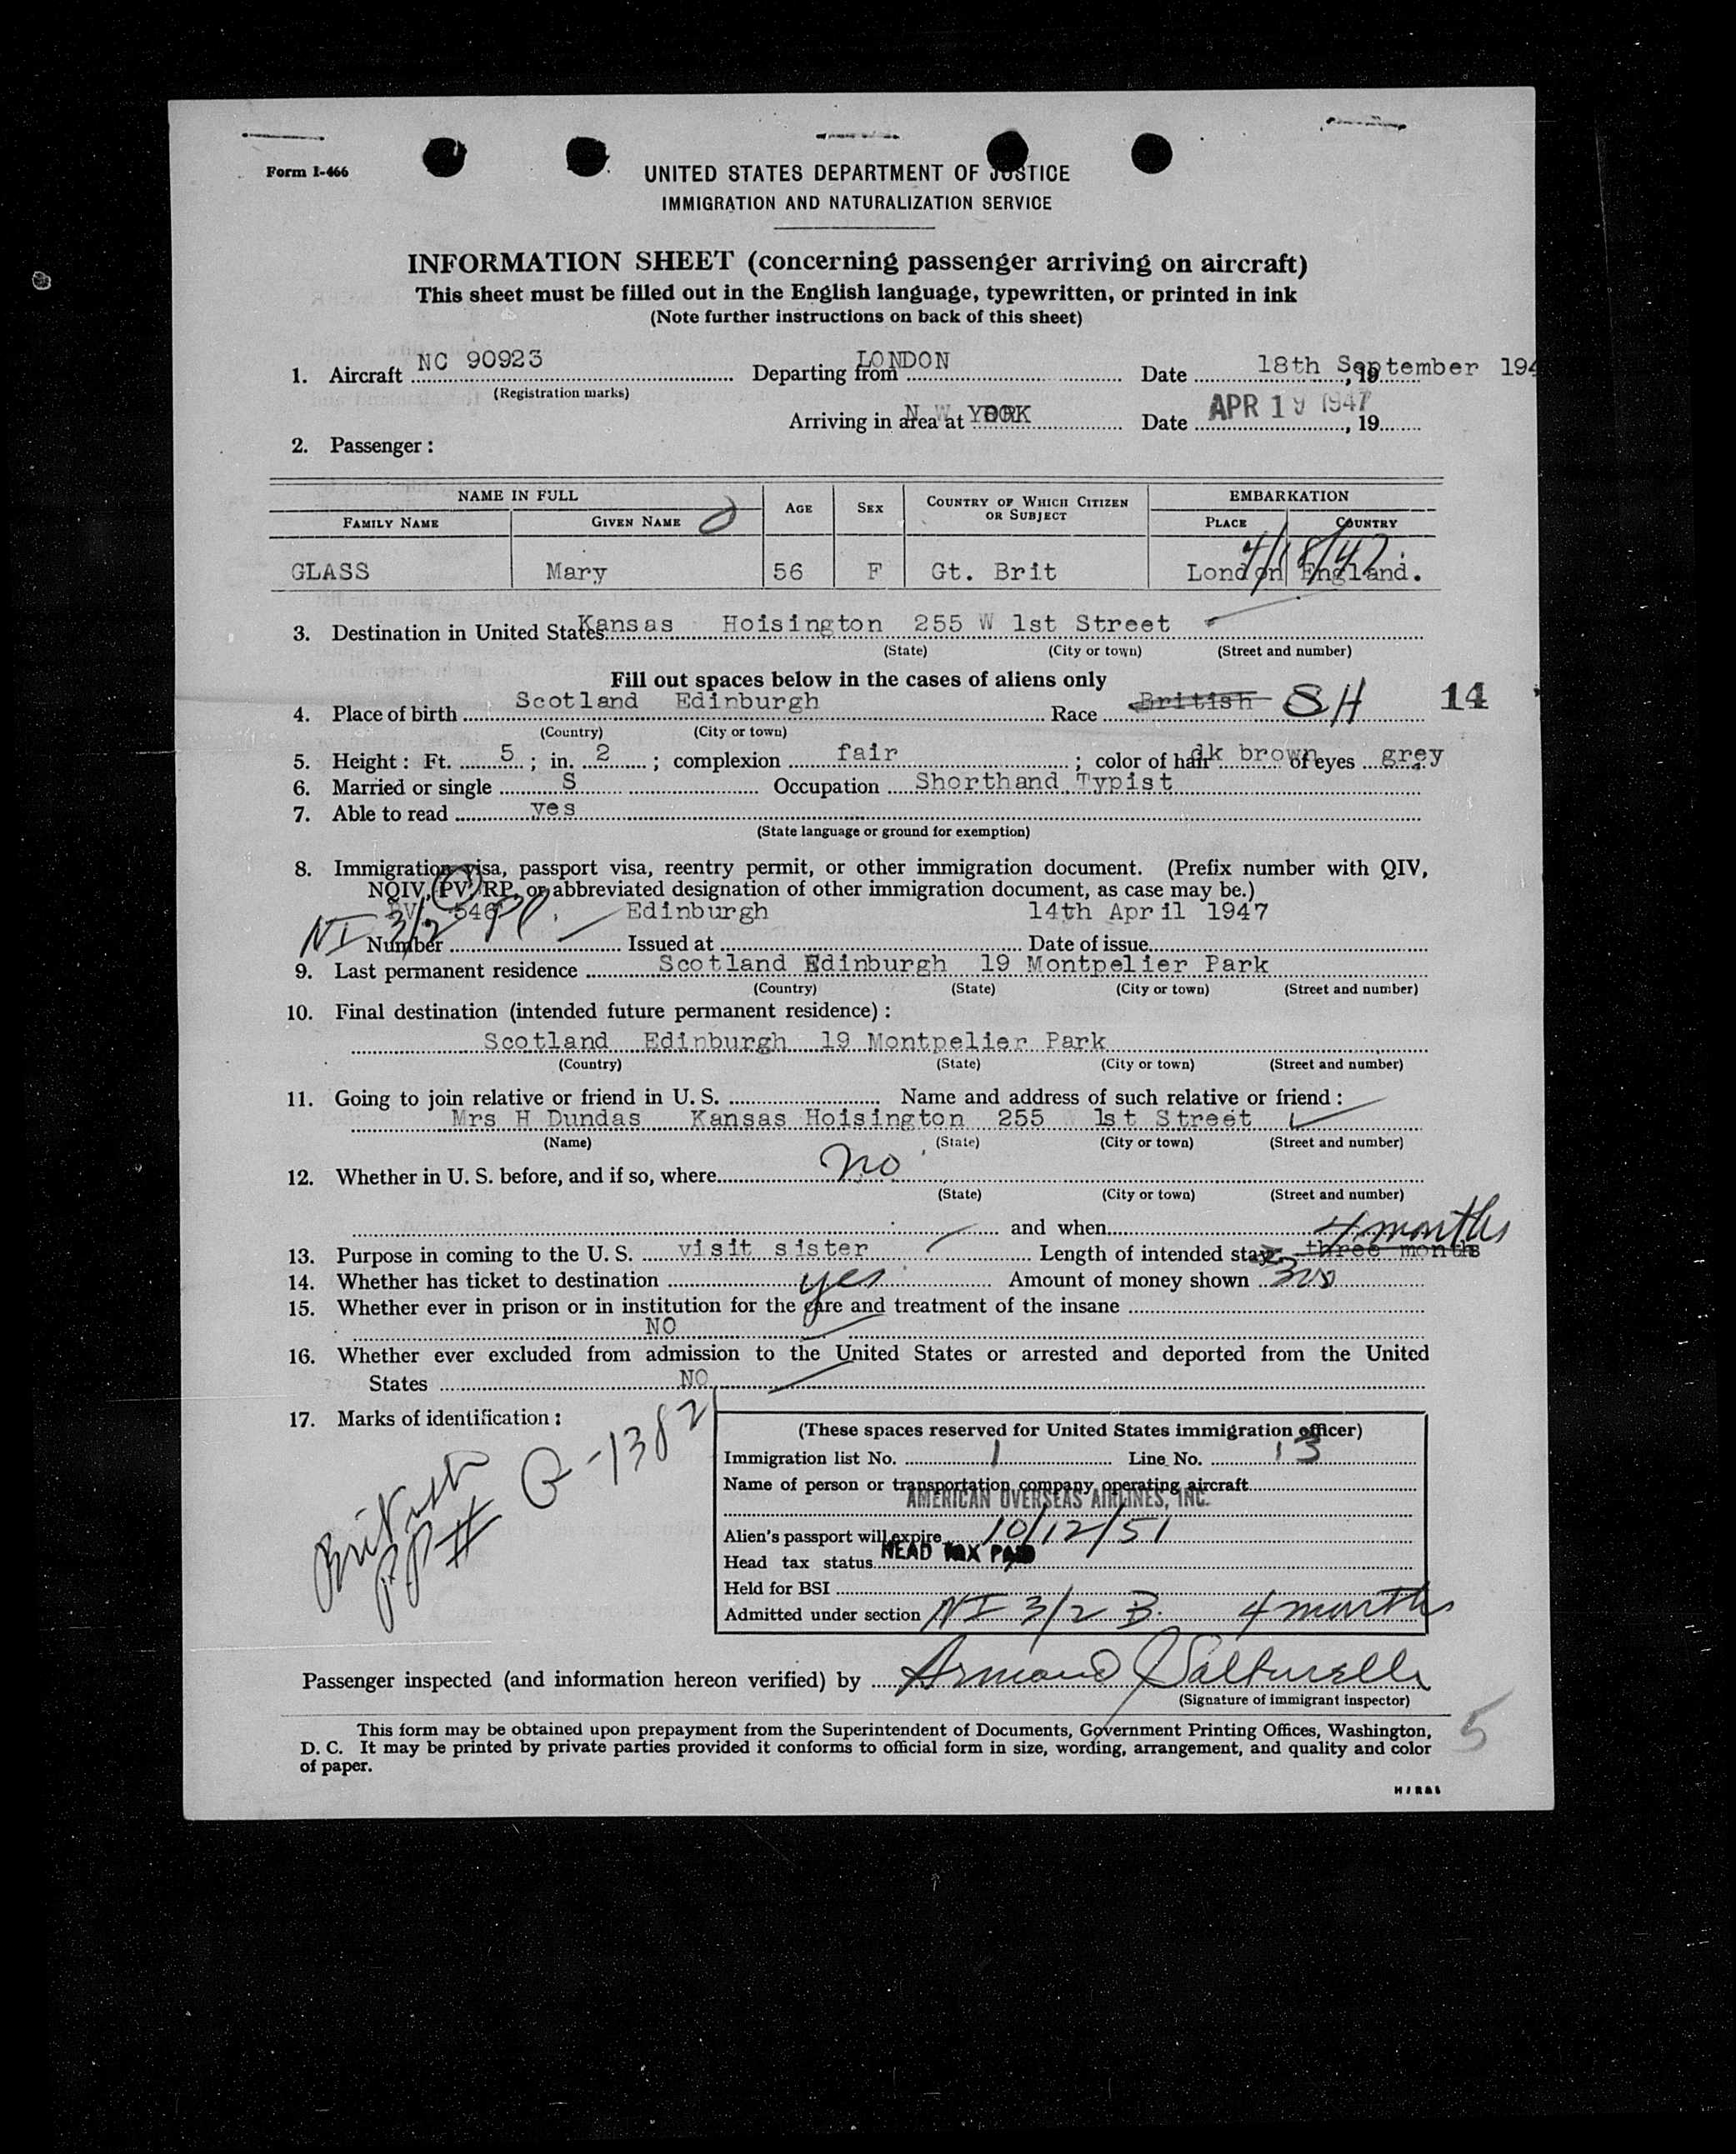 Form I-466
UNITED STATES DEPARTMENT OF JUSTICE
IMMIGRATION AND NATURALIZATION SERVICE
INFORMATION SHEET (concerning passenger arriving on aircraft)
This sheet must be filled out in the English language, typewritten, or printed in ink
(Note further instructions on back of this sheet)
1. Aircraft NC 90923 Departing from LONDON Date 18th September 194 , 19
(Registration marks)
Arriving in area at YORK Date APR 19 1947 , 19
2. Passenger:
NAME IN FULL AGE SEX COUNTRY OF WHICH CITIZEN OR SUBJECT EMBARKATION
FAMILY NAME GIVEN NAME PLACE COUNTRY
4/18/47
GLASS Mary 56 F Gt. Brit London England.
3. Destination in United States Kansas Hoisington 255 W 1st Street
(State) (City or town) (Street and number)
Fill out spaces below in the cases of aliens only
4. Place of birth Scotland Edinburgh Race British SH 14
(Country) (City or town)
5. Height: Ft. 5 ; in. 2 ; complexion fair ; color of hair dk brown of eyes grey
6. Married or single S Occupation Shorthand Typist
7. Able to read yes
(State language or ground for exemption)
8. Immigration visa, passport visa, reentry permit, or other immigration document. (Prefix number with QIV,
NQIV, PV, RP, or abbreviated designation of other immigration document, as case may be.)
PV 546 Edinburgh 14th April 1947
NI 3/2 Number Issued at Date of issue
9. Last permanent residence Scotland Edinburgh 19 Montpelier Park
(Country) (State) (City or town) (Street and number)
10. Final destination (intended future permanent residence):
Scotland Edinburgh 19 Montpelier Park
(Country) (State) (City or town) (Street and number)
11. Going to join relative or friend in U. S. Name and address of such relative or friend:
Mrs H Dundas Kansas Hoisington 255 W 1st Street
(Name) (State) (City or town) (Street and number)
12. Whether in U. S. before, and if so, where no
(State) (City or town) (Street and number)
and when 4 months
13. Purpose in coming to the U. S. visit sister Length of intended stay three months
14. Whether has ticket to destination yes Amount of money shown 300
15. Whether ever in prison or in institution for the care and treatment of the insane
NO
16. Whether ever excluded from admission to the United States or arrested and deported from the United
States NO
17. Marks of identification:
British
PP# Q-1382
(These spaces reserved for United States immigration officer)
Immigration list No. 1 Line No. 13
Name of person or transportation company operating aircraft
AMERICAN OVERSEAS AIRLINES, INC.
Alien's passport will expire 10/12/51
Head tax status HEAD TAX PAID
Held for BSI
Admitted under section NI 3/2 B. 4 months
Passenger inspected (and information hereon verified) by Armand
(Signature of immigrant inspector)
This form may be obtained upon prepayment from the Superintendent of Documents, Government Printing Offices, Washington,
D. C. It may be printed by private parties provided it conforms to official form in size, wording, arrangement, and quality and color
of paper.
5